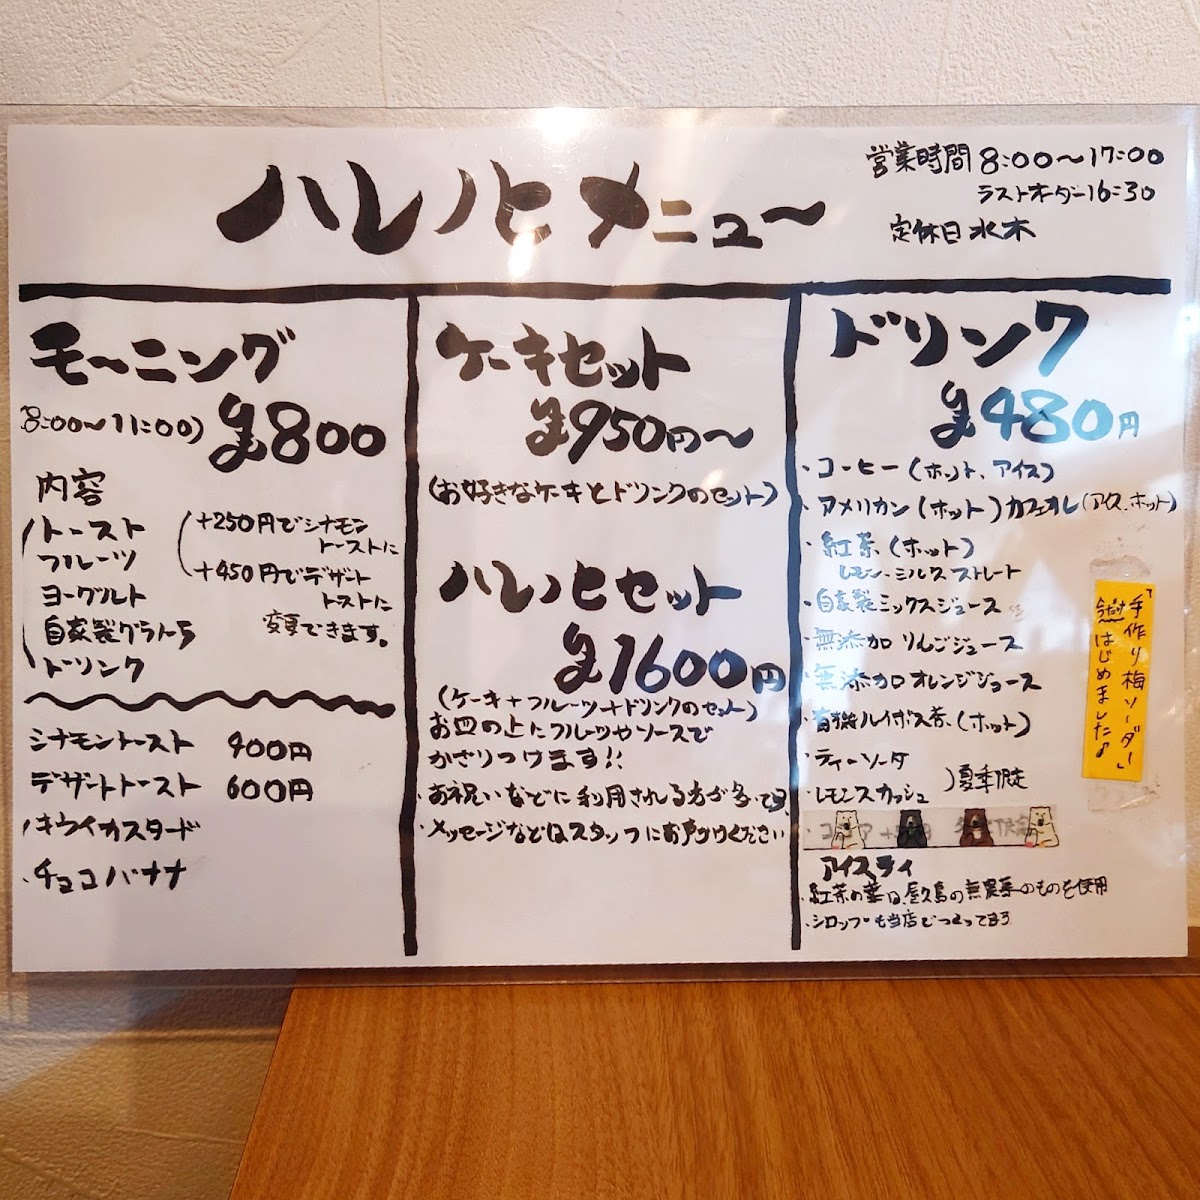 ハレノヒメニュ〜
営業時間 8:00〜17:00
ラストオーダー16:30
定休日 水木
モ〜ニング
(8:00〜11:00) ¥800
内容
トースト
フルーツ
ヨーグルト
自家製グラノラ
ドリンク
+250円でシナモン
トーストに
+450円でデザート
トストに
変更できます。
シナモントースト 400円
デザートトースト 600円
・キウイカスタード
・チョコバナナ
ケーキセット
¥950円〜
(お好きなケーキとドリンクのセット)
ハレノヒセット
¥1600円
(ケーキ+フルーツ+ドリンクのセット)
お皿の上にフルーツやソースで
かざりつけます!!
・お祝いなどに利用される方が多いです
・メッセージなどはスタッフにお声がけください
ドリンク
¥480円
・コーヒー(ホット、アイス)
・アメリカン(ホット)カフェオレ(アイス、ホット)
・紅茶(ホット)
レモン・ミルクストレート
・自家製ミックスジュース
・無添加 りんごジュース
・無添加 オレンジジュース
・有機ルイボス茶(ホット)
・ティーソーダ
・レモンスカッシュ
)夏季限定
アイスティ
・紅茶の葉は、屋久島の無農薬のものを使用
・シロップも当店でつくってます
「手作り梅ソーダー」
はじめました♪